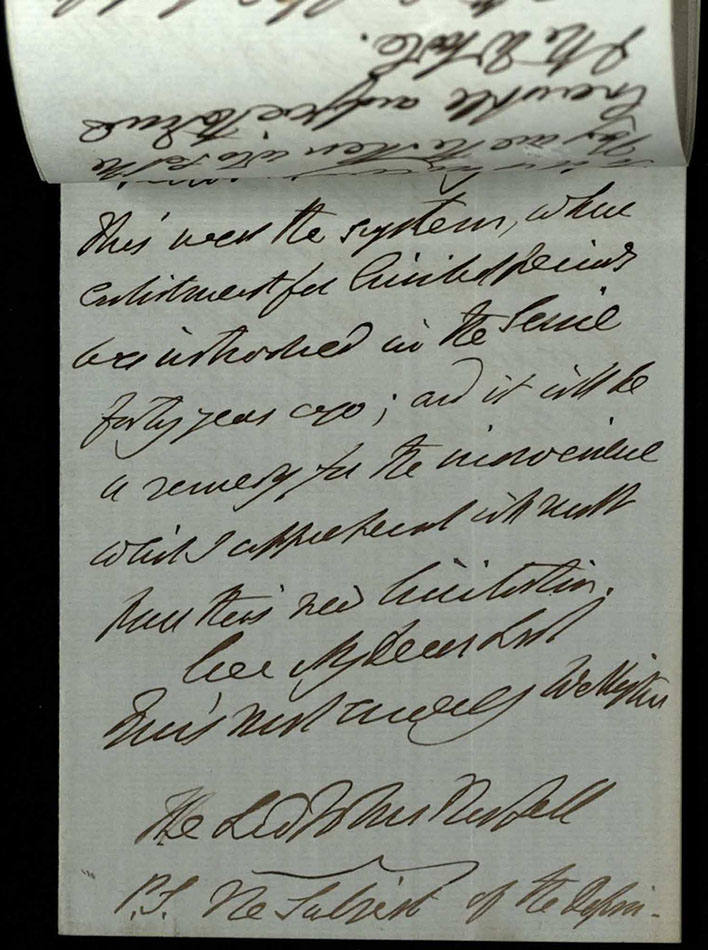 the Whole.
This was the system, when
enlistment for limited periods
was introduced in the Service
forty years ago; and it will be
a remedy for the inconvenience
which I apprehend will result
from this new limitation.
Believe My Dear Lord
Yours most sincerely Wellington
The Lord John Russell
P.S. The Subject of the